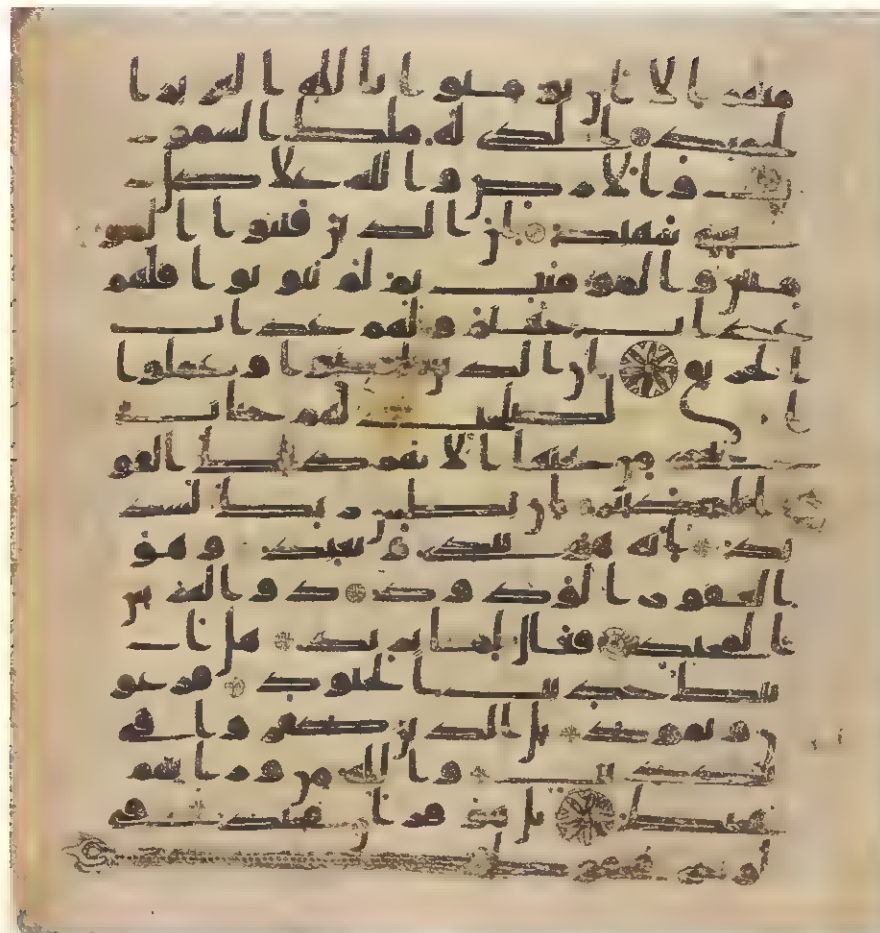 منهم الا ان يومنوا بالله العزيز ا
لحميد الذي له ملك السمو
ت والارض والله على كل
شي شهيد ان الذين فتنوا المو
منين والمومنت ثم لم يتوبوا فلهم
عذاب جهنم ولهم عذاب
الحريق ان الذين امنوا وعملوا
الصلحت لهم جنت
تجري من تحتها الانهر ذلك الفو
ز الكبير ان بطش ربك لشد
يد انه هو يبدي ويعيد وهو
الغفور الودود ذو العرش
المجيد فعال لما يريد هل ا
تيك حديث الجنود فرعو
ن وثمود بل الذين كفروا في
تكذيب والله من ورايهم
محيط بل هو قران مجيد في
لوح محفوظ